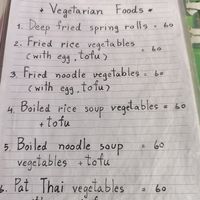 * Vegetarian Foods *
1. Deep fried spring rolls = 60
2. Fried rice vegetables = 60
(with egg, tofu)
3. Fried noodle vegetables = 60
(with egg, tofu)
4. Boiled rice soup vegetables = 60
+ tofu
5. Boiled noodle soup = 60
vegetables + tofu
6. Pat Thai vegetables = 60